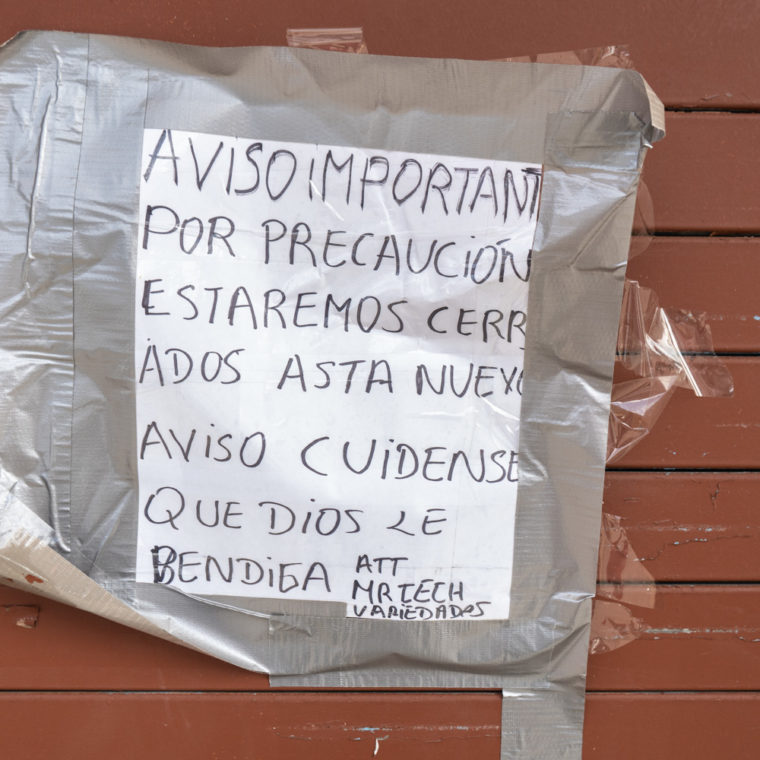 AVISO IMPORTANT
POR PRECAUCIÓN
ESTAREMOS CERR
ADOS ASTA NUEVO
AVISO CUIDENSE
QUE DIOS LE
BENDIGA
ATT
MR TECH
VARIEDADES